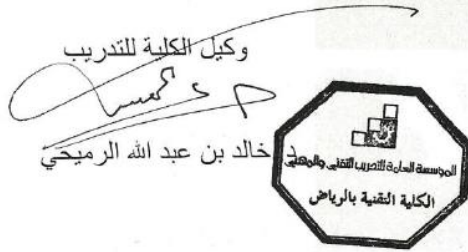 وكيل الكلية للتدريب
د. خالد بن عبد الله الرميحي
المؤسسة العامة للتدريب التقني والمهني
الكلية التقنية بالرياض